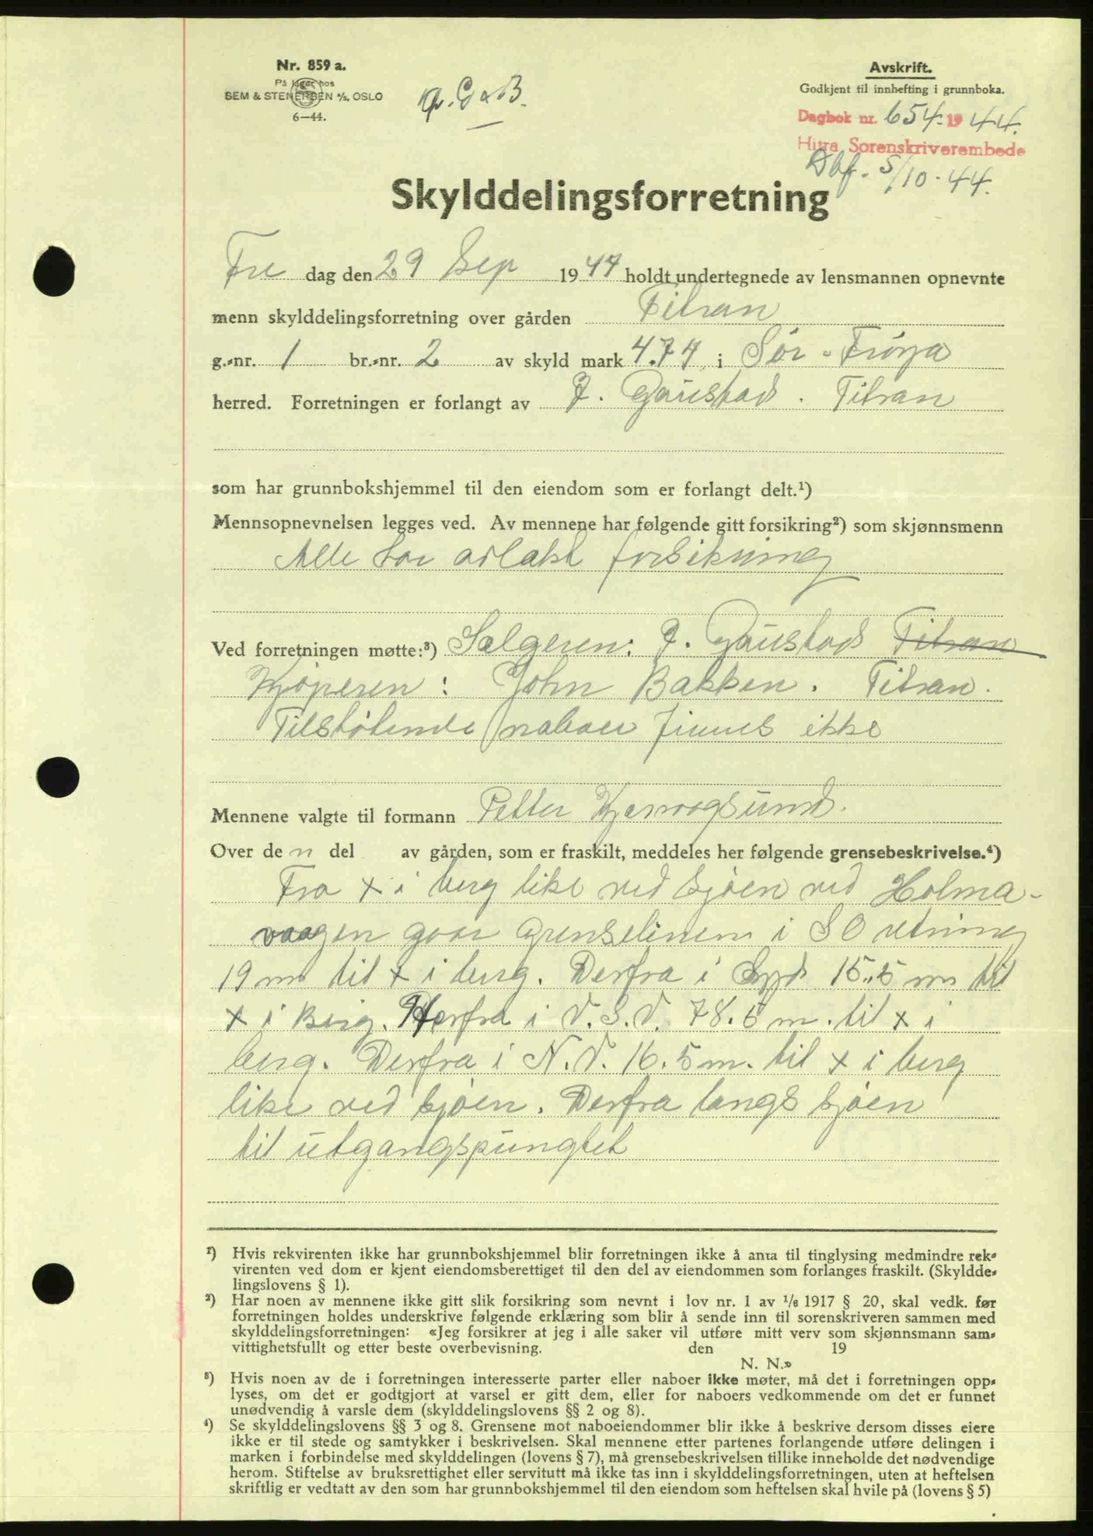 Nr. 859 a.
På lager hos
SEM & STENERSEN A/S, OSLO
6-44.
Avskrift.
Godkjent til innhefting i grunnboka.
Dagbok nr. 654. 19 44.
Hitra Sorenskriverembede
Dbf. 5/10-44.
Skylddelingsforretning
Fre dag den 29 Sep 1944 holdt undertegnede av lensmannen opnevnte
menn skylddelingsforretning over gården Titran
g.-nr. 1 br.-nr. 2 av skyld mark 4.74 i Sør-Frøya
herred. Forretningen er forlangt av J. Gaustad. Titran
som har grunnbokshjemmel til den eiendom som er forlangt delt.¹)
Mennsopnevnelsen legges ved. Av mennene har følgende gitt forsikring²) som skjønnsmenn
Alle har avlakt forsikring
Ved forretningen møtte:³) Selgeren: J. Gaustad Titran
Kjøperen: John Bakken. Titran.
Tilstøtende naboer finnes ikke
Mennene valgte til formann Petter
Over den del av gården, som er fraskilt, meddeles her følgende grensebeskrivelse.⁴)
Fra x i berg like ved sjøen ved Holma-
vaagen gaar grenselinem i SO retning
19 m til x i berg. Derfra i Syd 15.5 m til
x i Berg. Herfra i V.S.V. 78.5 m. til x i
berg. Derfra i N.V. 16.5 m. til x i berg
like ved sjøen. Derfra langs sjøen
til utgangspungtet
¹) Hvis rekvirenten ikke har grunnbokshjemmel blir forretningen ikke å anta til tinglysing medmindre rek-
virenten ved dom er kjent eiendomsberettiget til den del av eiendommen som forlanges fraskilt. (Skyldde-
lingslovens § 1).
²) Har noen av mennene ikke gitt slik forsikring som nevnt i lov nr. 1 av 1/6 1917 § 20, skal vedk. før
forretningen holdes underskrive følgende erklæring som blir å sende inn til sorenskriveren sammen med
skylddelingsforretningen: «Jeg forsikrer at jeg i alle saker vil utføre mitt verv som skjønnsmann sam-
vittighetsfullt og etter beste overbevisning. den 19
N. N.»
³) Hvis noen av de i forretningen interesserte parter eller naboer ikke møter, må det i forretningen opp-
lyses, om det er godtgjort at varsel er gitt dem, eller for naboers vedkommende om det er funnet
unødvendig å varsle dem (skylddelingslovens §§ 2 og 8).
⁴) Se skylddelingslovens §§ 3 og 8. Grensene mot naboeiendommer blir ikke å beskrive dersom disses eiere
ikke er til stede og samtykker i beskrivelsen. Skal mennene etter partenes forlangende utføre delingen i
marken i forbindelse med skylddelingen (lovens § 7), må grensebeskrivelsen tillike inneholde det nødvendige
herom. Stiftelse av bruksrettighet eller servitutt må ikke tas inn i skylddelingsforretningen, uten at heftelsen
skriftlig er vedtatt av den som har grunnbokshjemmel til den eiendom som heftelsen skal hvile på (lovens § 5)